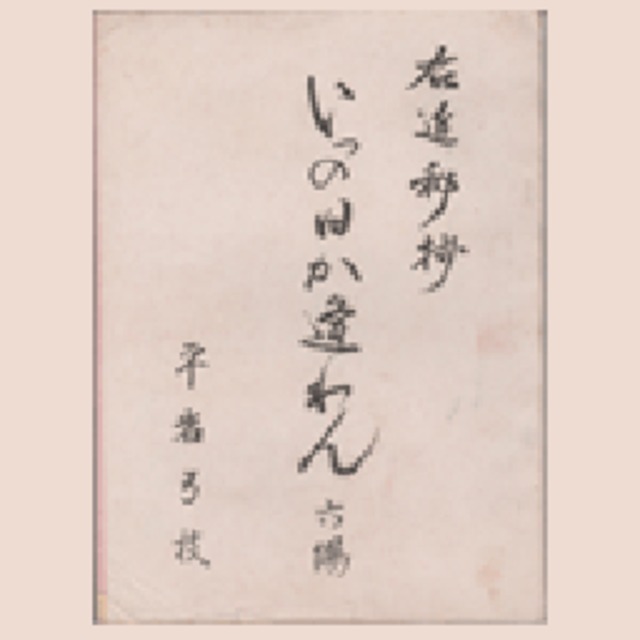 右近郷抄
いつの日か逢わん
六陽
平岩弓枝